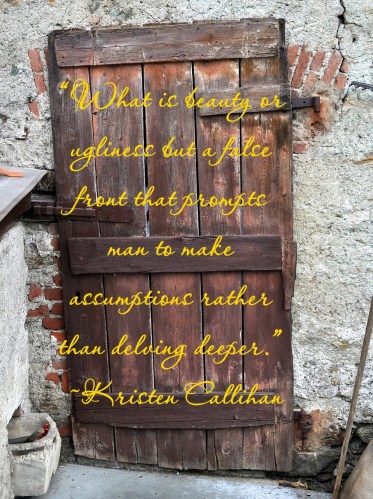 “What is beauty or
ugliness but a false
front that prompts
man to make
assumptions rather
than delving deeper.”
~Kristen Callihan